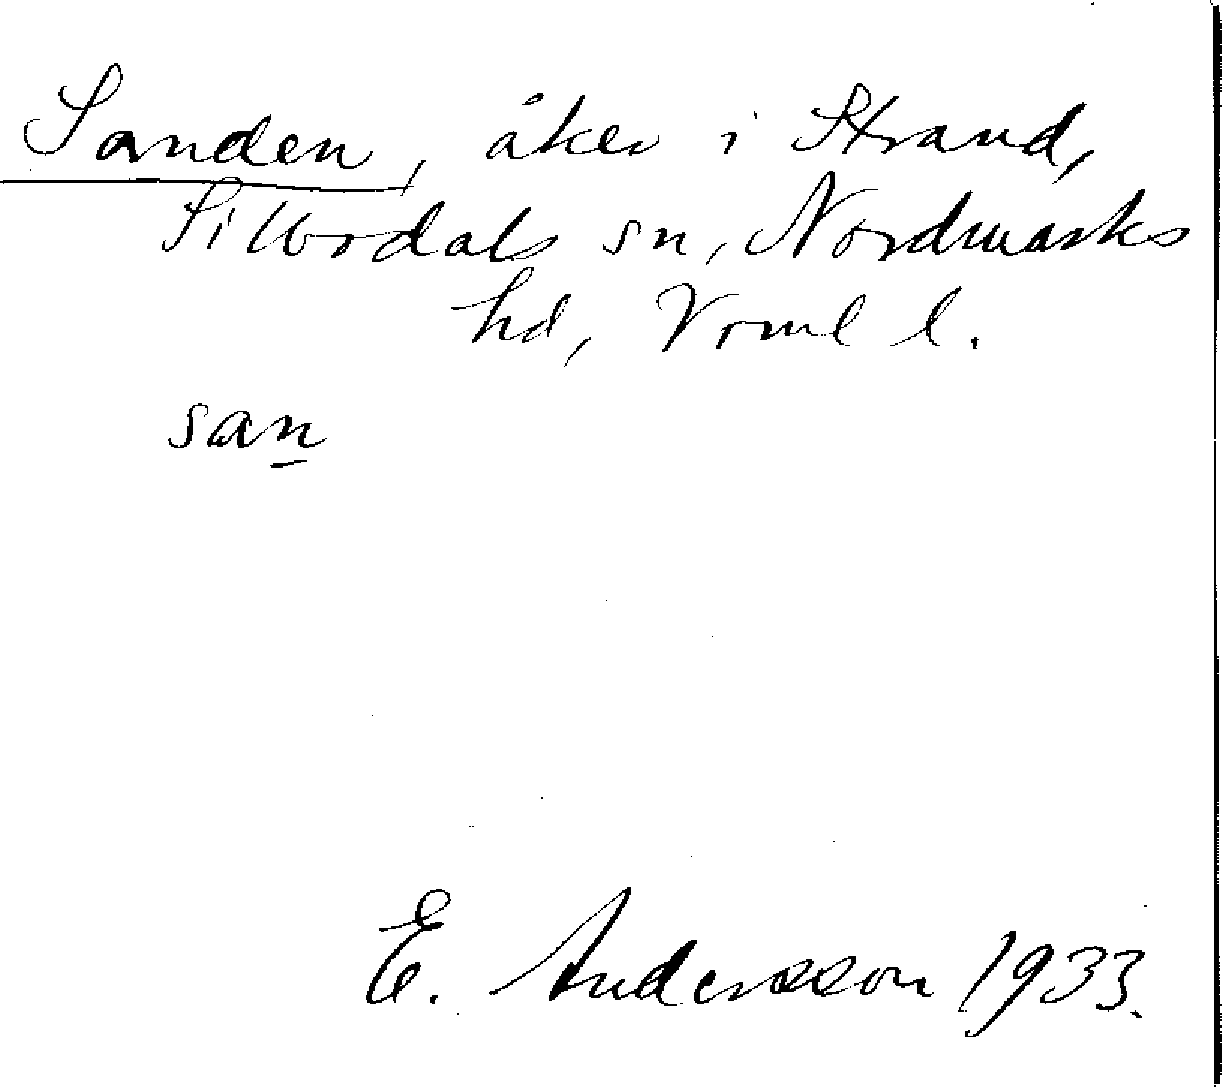 Sanden, åker i Strand,
Sillbodals sn, Nordmarks
hd, Vrml l.
san
E. Andersson 1933.